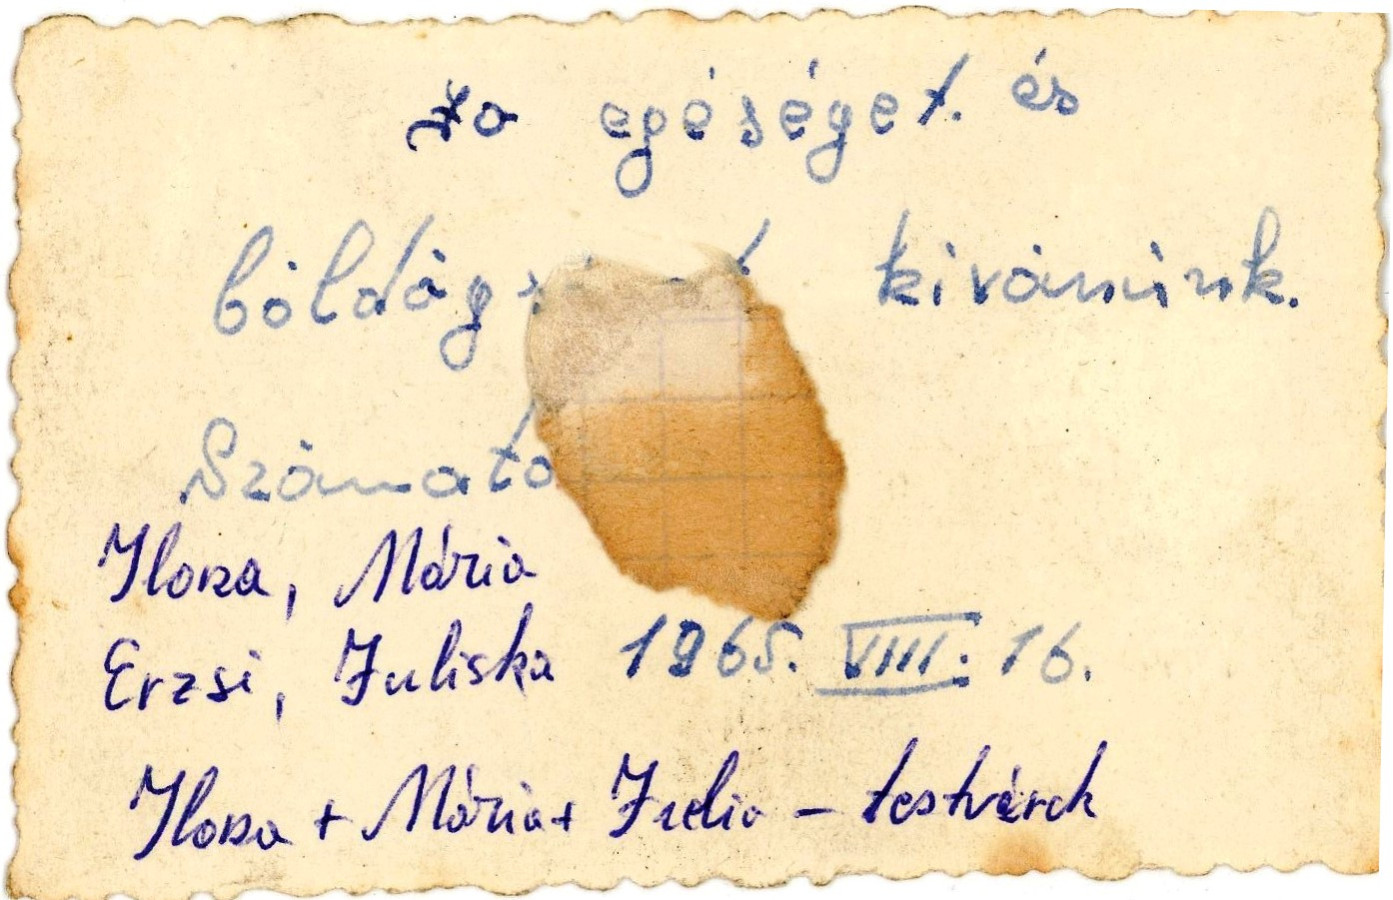 Jo egéséget. és
bóldógs t kivánunk.
Szánató
Ilona, Mária
Erzsi, Juliska 1965. VIII. 16.
Ilona + Mária + Julia - testvérek